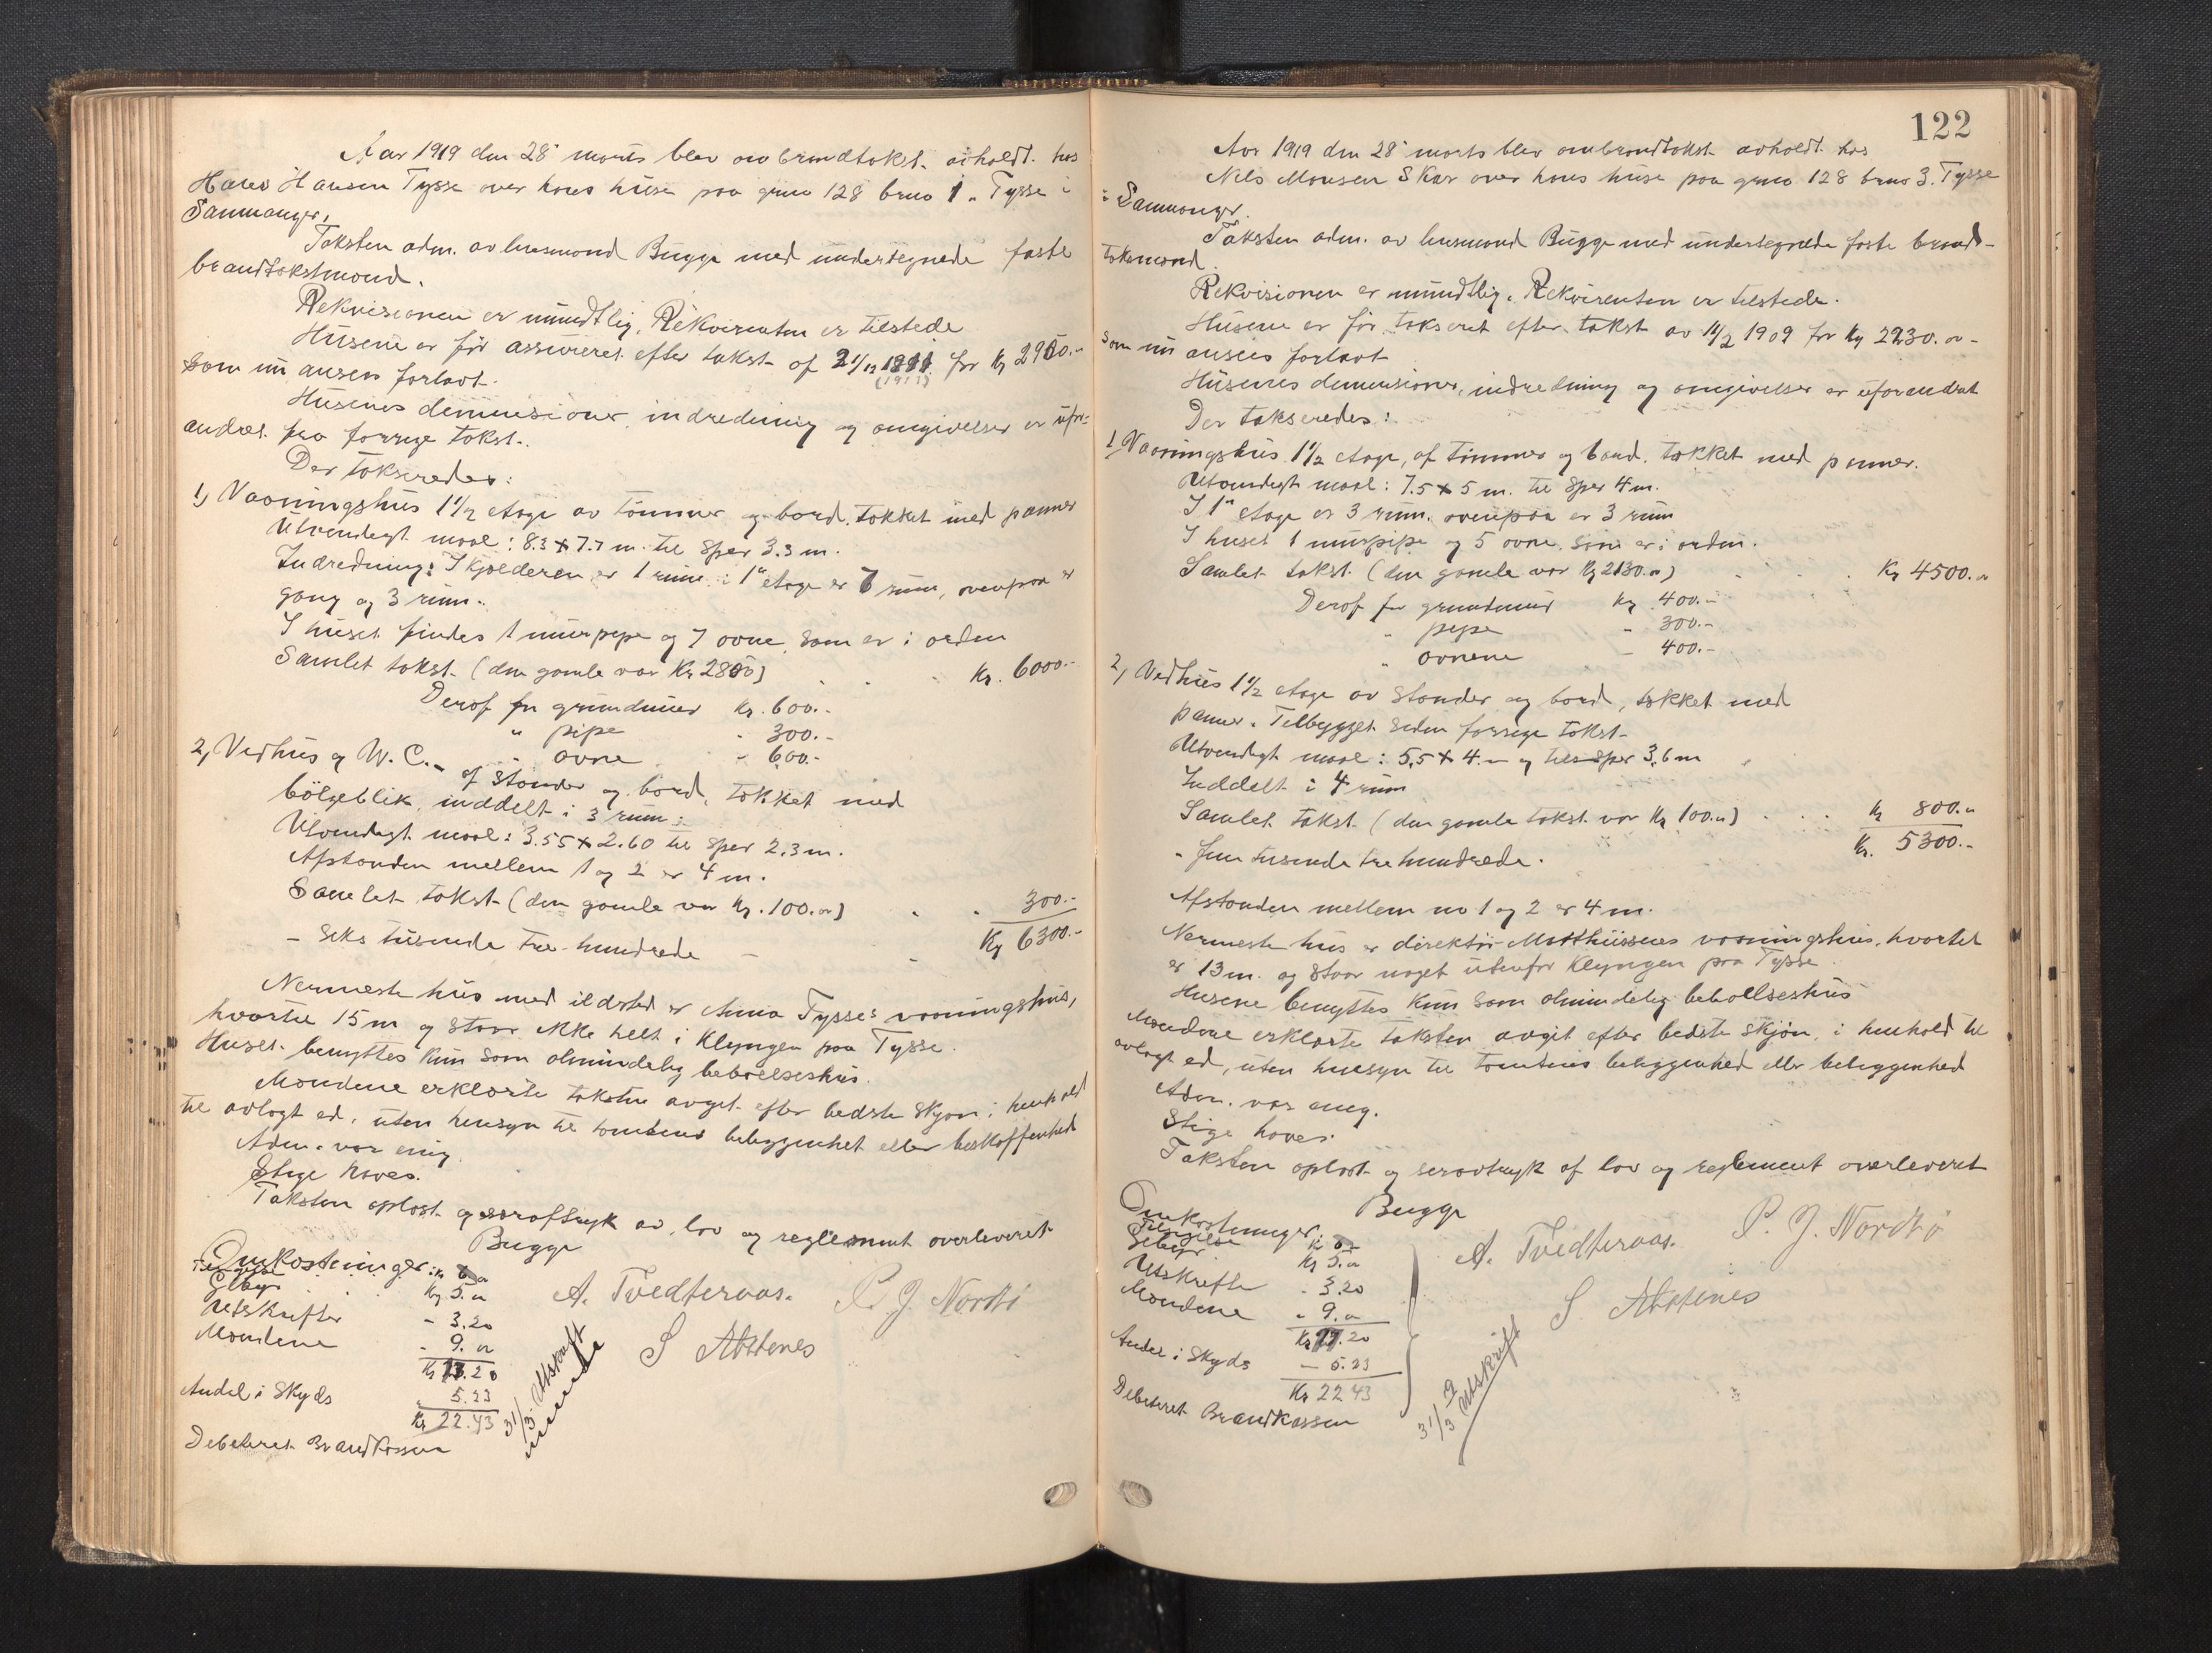 Aar 1919 den 28' marts blev ombrandtakst avholdt hos
Hans Hansen Tysse over hans huse paa gno 128 bno 1 " Tysse i
Samnanger.
Taksten adm. av lensmand Bugge med undertegnede faste
brandtakstmænd.
Rekvisionen er mundtlig. Rekvirenten er tilstede
Husene er før assureret efter takst af 21/12 1911 for Kr 2900.-
(1911)
som nu ansees forlavt.
Husenes dimensioner, indredning og omgivelser er ufor-
andret fra forrige takst.
Der takseredes:
1, Vaaningshus 1 1/2 etage av tømmer og bord, tækket med panner
Utvendigt maal: 8.3 x 7.7 m. til sper 3.3 m.
Indredning: I kjælderen er 1 rum, i 1" etage er 6 rum, ovenpaa er
gang og 3 rum.
I huset findes 1 murpipe og 7 ovne, som er i orden
Samlet takst (den gamle var Kr 2800) . . . Kr. 6000.-
Deraf for grundmur Kr. 600.-
" pipe - 300.-
" ovne - 600.-
2, Vedhus og W. C. - af stander og bord, tækket med
bølgeblik, inddelt i 3 rum.
Utvendigt maal: 3.55 x 2.60 til sper 2,3 m.
Afstanden mellem 1 og 2 er 4 m.
Samlet takst (den gamle var Kr. 100.") . . 300.-
- Seks tusende tre hundrede - - Kr 6300.-
Nermeste hus med ildsted er Anna Tysses vaaningshus,
hvortil 15 m og staar ikke helt i Klyngen paa Tysse.
Huset benyttes kun som almindelig beboelseshus.
Mændene erklærte taksten avget efter bedste skjøn i henhold
til avlagt ed, uten hensyn til tomtens beliggenhet eller beskaffenhed
Adm. var enig.
Stige haves.
Taksten oplæst og særaftryk av lov og reglement overleveret
Bugge
Omkostninger:
Gebyr Kr 5."
Utskrifter - 3.20
Mændene - 9. "
Kr 17.20
Andel i Skyds 5.23
Kr 22.43
Debiteret Brandkassen
A. Tvedteraas. P. J. Nordbø
S Aadtenes
31/3 Utskrift
122
Aar 1919 den 28' marts blev ombrandtakst avholdt hos
Nils Monsen Skar over hans huse paa gno 128 bno 3. Tysse
i Samnanger.
Taksten adm. av lensmand Bugge med undertegnede faste brand-
takstmænd.
Rekvisionen er mundtlig. Rekvirenten er tilstede.
Husene er før takseret efter takst av 11/2 1909 for Kr 2230. " -
som nu ansees forlavt
Husenes dimensioner, indredning og omgivelser er uforandret
Der takseredes:
1, Vaaningshus 1 1/2 etage, af tømmer og bord, tækket med panner.
Utvendigt maal: 7.5 x 5 m. til sper 4 m.
I 1" etage er 3 rum, ovenpaa er 3 rum
I huset 1 murpipe og 5 ovne, som er i orden.
Samlet takst (den gamle var Kr 2130.") . . . Kr 4500."
Deraf for grundmur Kr 400.-
" pipe - 300.-
" ovnene - 400.-
2, Vedhus 1 1/2 etage av stander og bord, tækket med
panner. Tilbygget siden forrige takst
Utvendigt maal: 5,5 x 4.- og til sper 3,6 m
Inddelt i 4 rum
Samlet takst (den gamle takst var Kr 100.") . . . Kr 800."
- fem tusende tre hundrede. Kr. 5300.-
Afstanden mellem no 1 og 2 er 4 m.
Nermeste hus er direktør Matthiissens vaaningshus, hvortil
er 13 m. og staar noget utenfor Klyngen paa Tysse.
Husene benyttes kun som almindelig beboelseshus
Mændene erklærte taksten avgit efter bedste skjøn, i henhold til
avlagt ed, uten hensyn til tomtens beliggenhed eller beliggenhed
Adm. var enig.
Stige haves.
Taksten oplæst og særavtryk af lov og reglement overleveret
Bugge
Omkostninger:
Gebyr Kr 5."
Utskrifter - 3.20
Mændene " 9. "
Kr 17.20
Andel i Skyds - 5.23
Kr 22 43
Debiteret Brandkassen
A. Tvedteraas. P. J. Nordbø
S Aadtenes
31/3 Utskrift